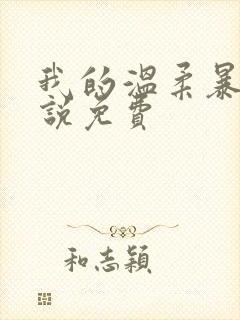 我的温柔暴
說免費
和志穎